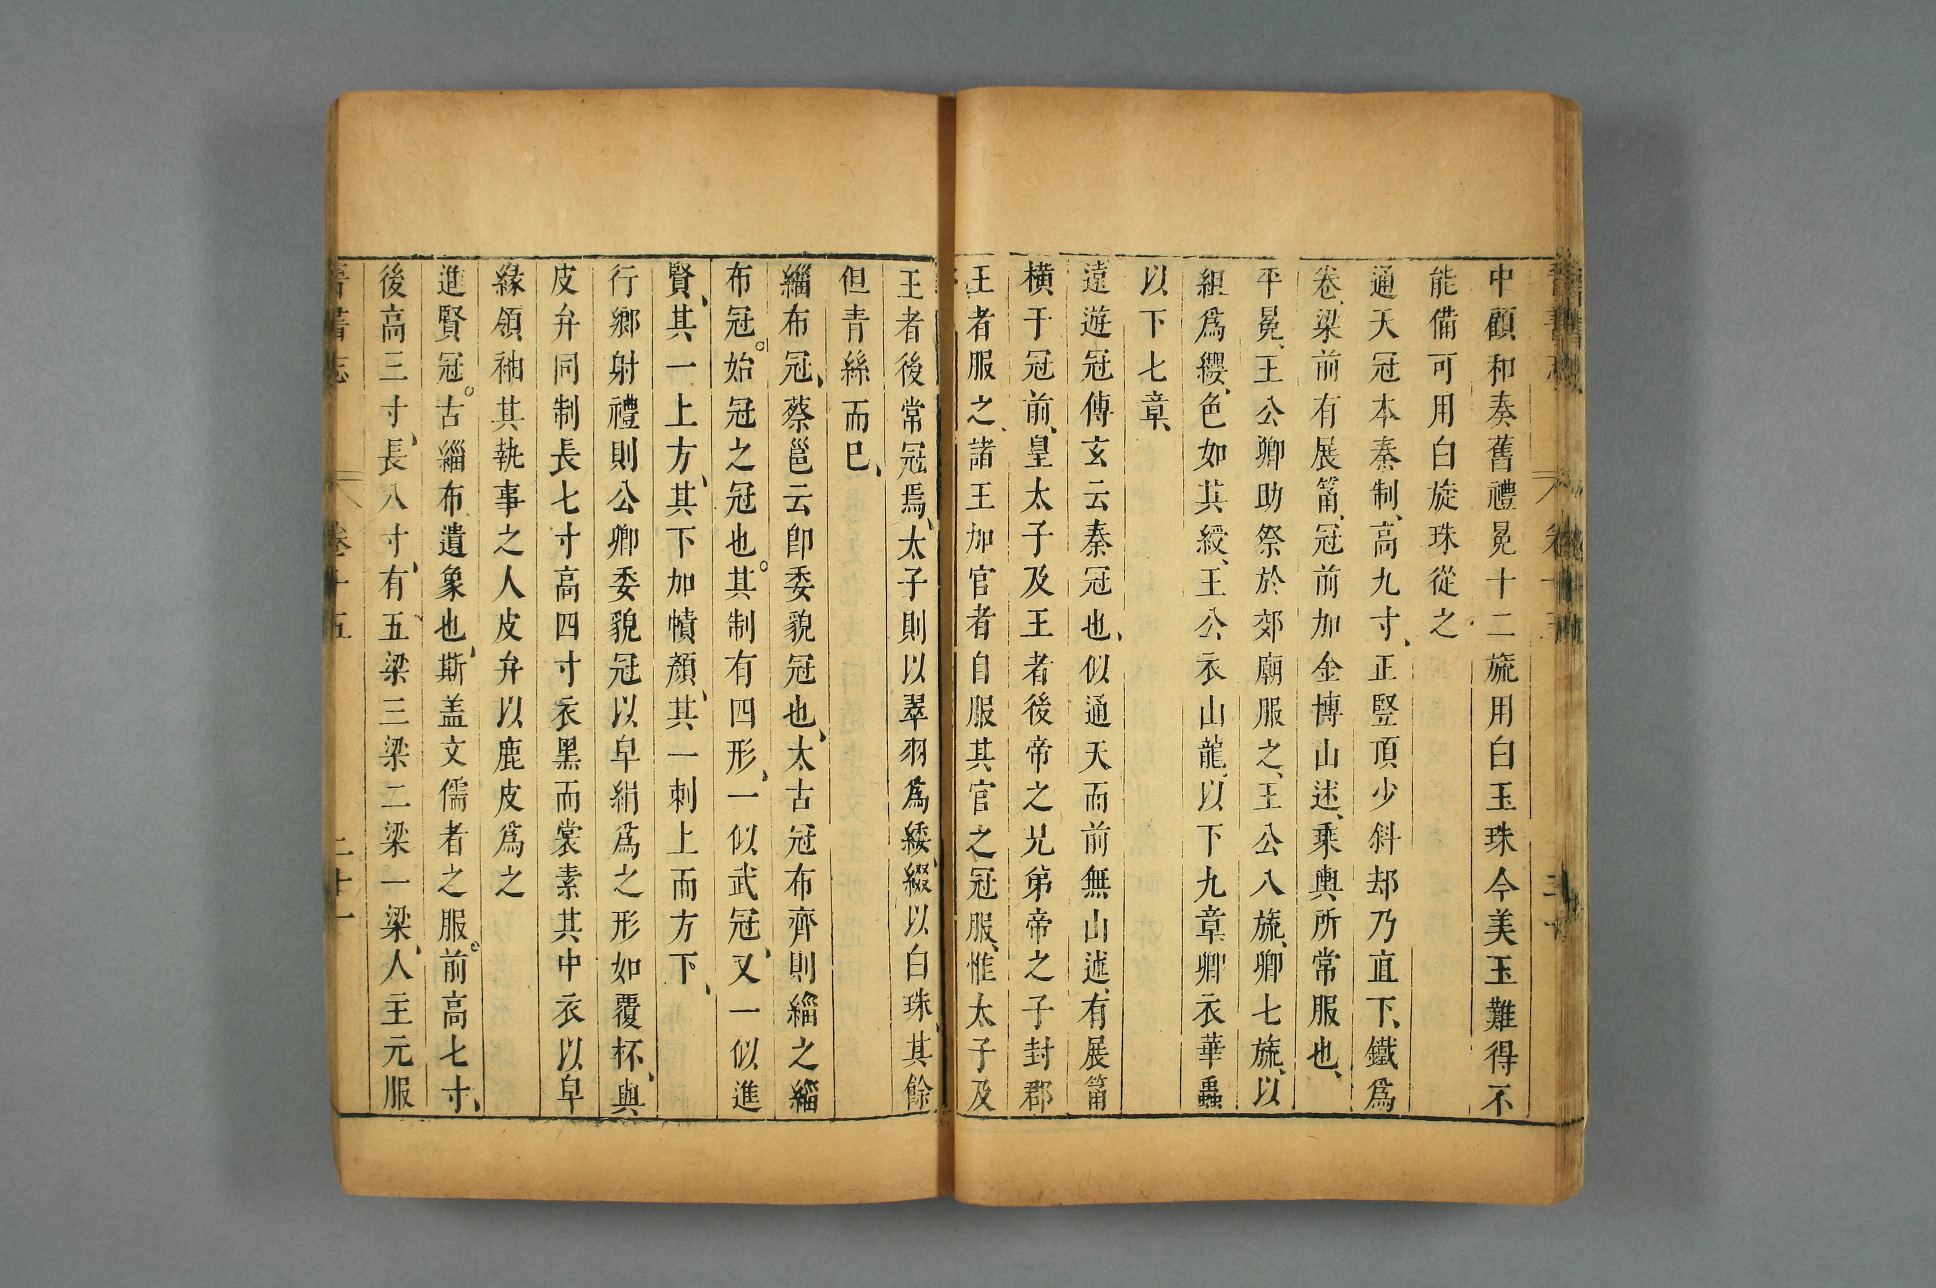 中顧和奏舊禮冕十二旒用白玉珠今美玉難得不
能備可用白旋珠從之
通天冠本秦制、高九寸、正豎頂少斜却乃直下、鐵爲
卷、梁前有展筩、冠前加金博山述、乘輿所常服也、
平冕、王公卿助祭於郊廟服之、王公八旒、卿七旒、以
組爲纓、色如其綬、王公衣山龍、以下九章卿衣華蟲
以下七章、
遠遊冠傅玄云秦冠也、似通天而前無山述、有展筩
橫于冠前、皇太子及王者後帝之兄弟帝之子封郡
王者服之、諸王加官者自服其官之冠服、惟太子及
王者後常冠焉、太子則以翠羽爲緌、綴以白珠、其餘
但青絲而已、
緇布冠、蔡邕云卽委貌冠也、太古冠布齊則緇之緇
布冠。始冠之冠也。其制有四形、一似武冠、又一似進
賢、其一上方、其下加幘顏、其一刺上而方下、
行鄉射禮則公卿委貌冠以皁絹爲之形如覆杯、與
皮弁同制長七寸高四寸衣黑而裳素其中衣以皁
緣領袖其執事之人皮弁以鹿皮爲之
進賢冠。古緇布遺象也、斯盖文儒者之服。前高七寸、
後高三寸、長八寸、有五梁三梁二梁一梁、人主元服
晉書志 卷十五 二十一